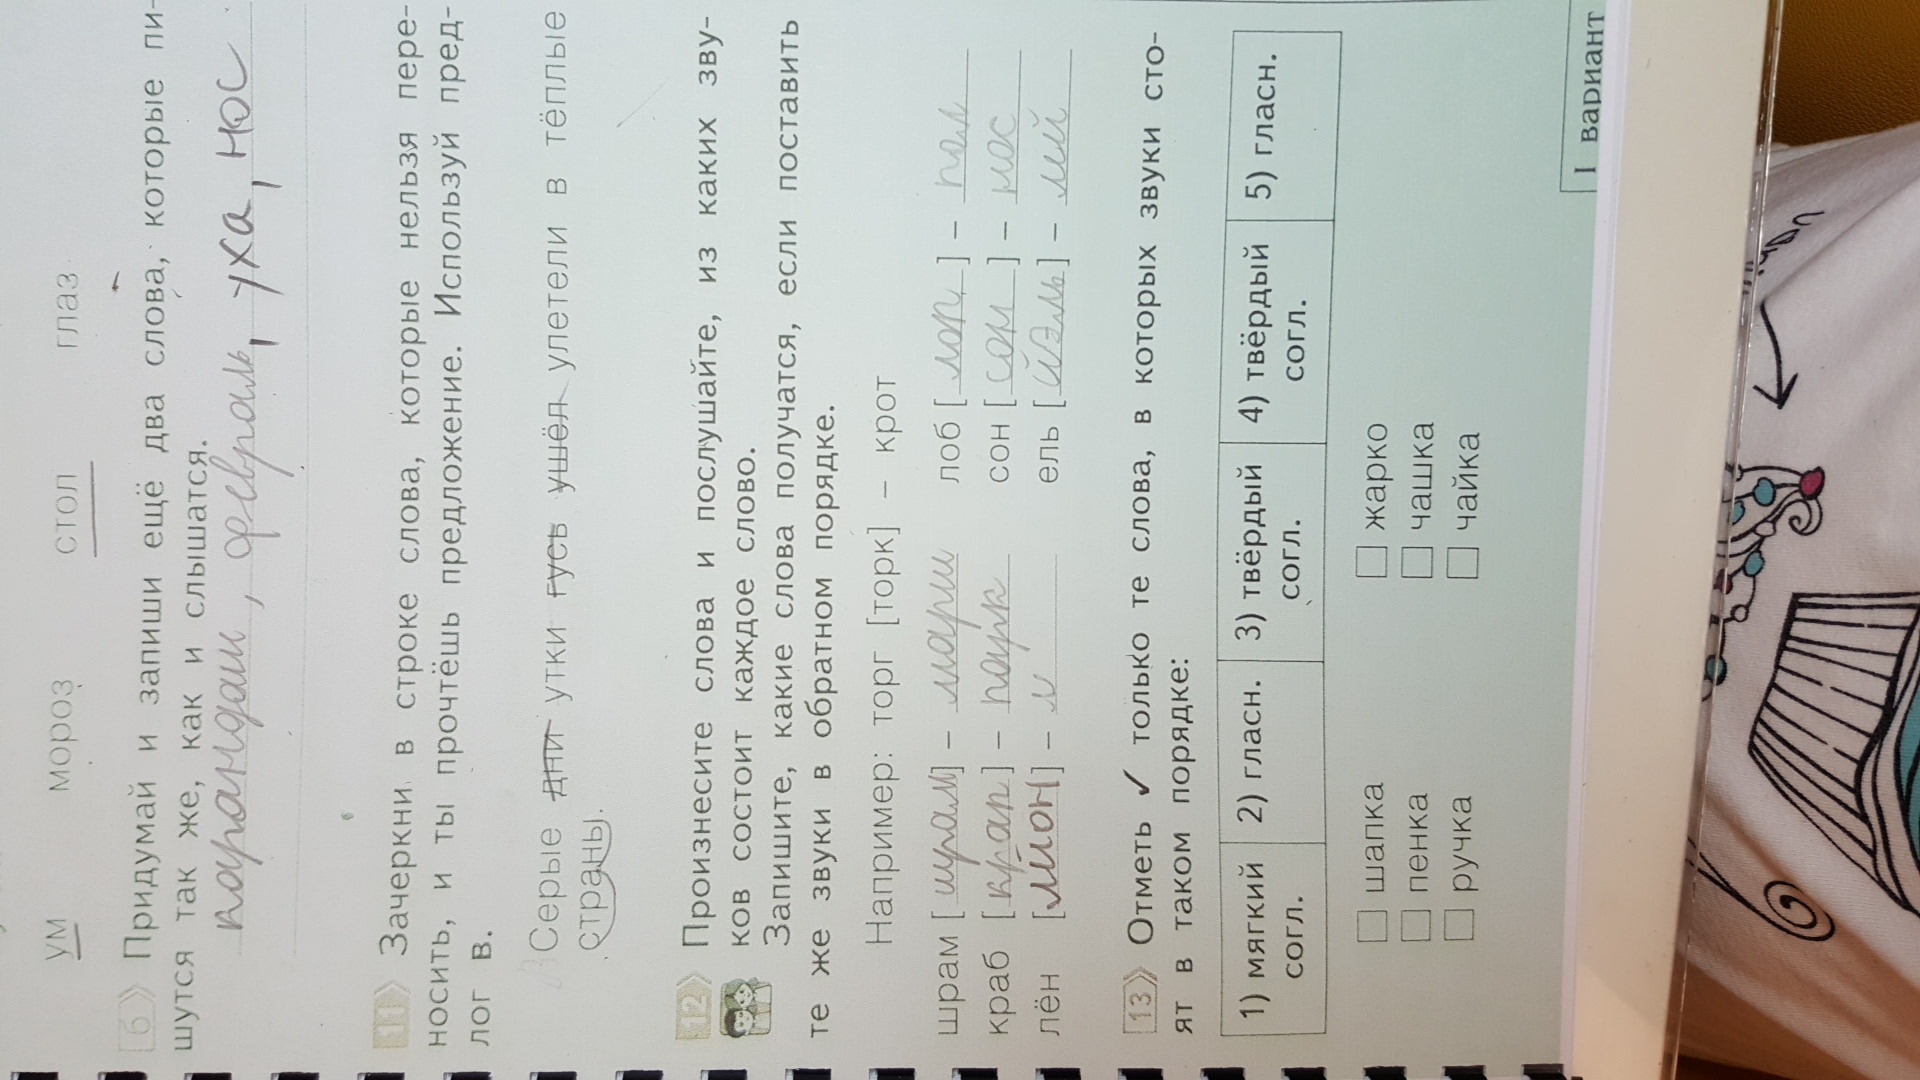 ум мороз стол глаз
б Придумай и запиши ещё два слова, которые пи-
шутся так же, как и слышатся.
карандаш, февраль, уха, нос
11 Зачеркни в строке слова, которые нельзя пере-
носить, и ты прочтёшь предложение. Используй пред-
лог в.
Серые дни утки гусь ушёл улетели в тёплые
страны.
12 Произнесите слова и послушайте, из каких зву-
ков состоит каждое слово.
Запишите, какие слова получатся, если поставить
те же звуки в обратном порядке.
Например: торг [торк] – крот
шрам [шрам] – марш лоб [лоп] – пол
краб [крап] – парк сон [сон] – нос
лён [лйон] – н ель [йэль] – лей
13 Отметь ✓ только те слова, в которых звуки сто-
ят в таком порядке:
1) мягкий согл. 2) гласн. 3) твёрдый согл. 4) твёрдый согл. 5) гласн.
□ шапка □ жарко
□ пенка □ чашка
□ ручка □ чайка
I вариант